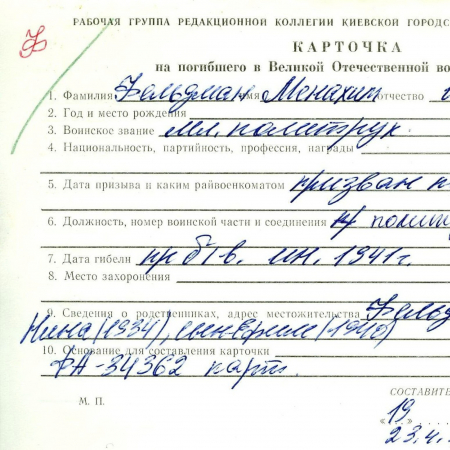 Ф
РАБОЧАЯ ГРУППА РЕДАКЦИОННОЙ КОЛЛЕГИИ КИЕВСКОЙ ГОРОДС
КАРТОЧКА
на погибшего в Великой Отечественной во
1. Фамилия Фельдман имя Монахим отчество
2. Год и место рождения
3. Воинское звание мл. политрук
4. Национальность, партийность, профессия, награды
5. Дата призыва и каким райвоенкоматом призван
6. Должность, номер воинской части и соединения политр
7. Дата гибели пр б/в. ин. 1941г.
8. Место захоронения
9. Сведения о родственниках, адрес местожительства Фельд
Нина (1934), сын Ефим (1940)
10. Основание для составления карточки
ФА-34362 карт.
СОСТАВИТЕ
М. П.
19
23.4.